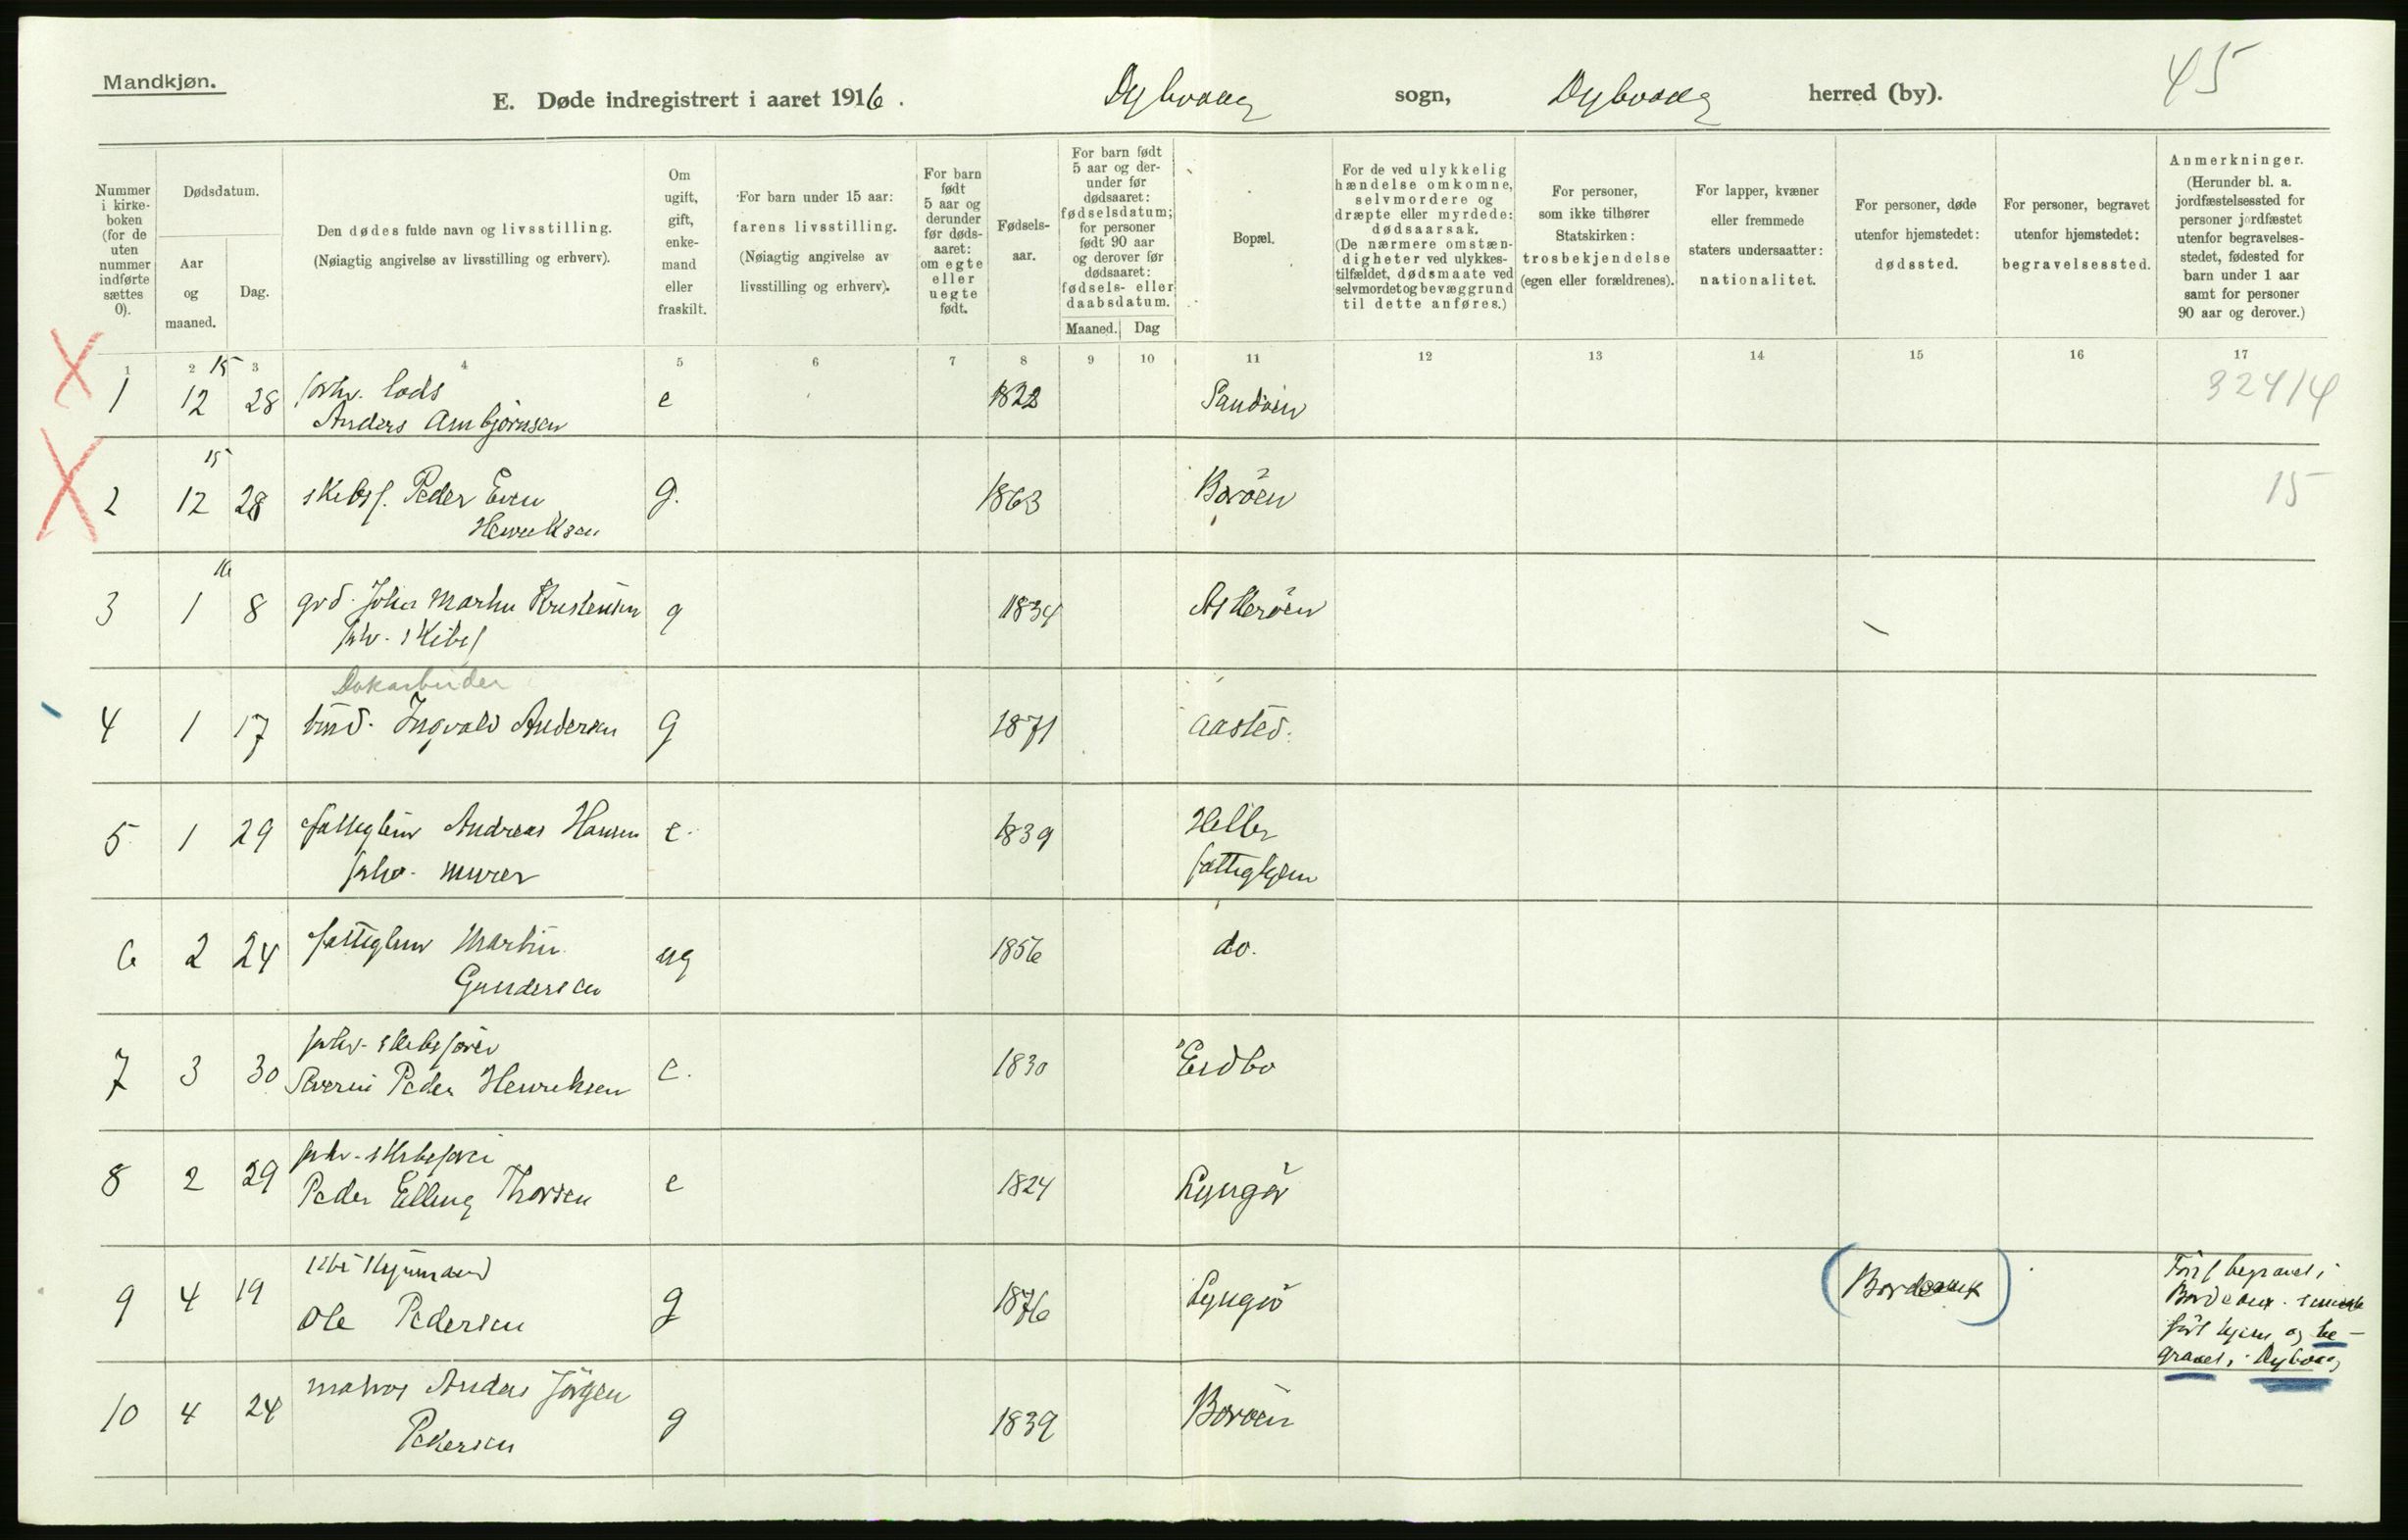 Mandkjøn.
E. Døde indregistrert i aaret 1916. Dybvaag sogn, Dybvaag herred (by).
45
Nummer i kirke- boken (for de uten nummer indførte sættes 0).
Dødsdatum.
Aar og maaned.
Dag.
Den dødes fulde navn og livsstilling.
(Nøiagtig angivelse av livsstilling og erhverv).
Om ugift, gift, enke- mand eller fraskilt.
For barn under 15 aar: farens livsstilling.
(Nøiagtig angivelse av livsstilling og erhverv).
For barn født 5 aar og derunder før døds- aaret: om egte eller uegte født.
Fødsels- aar.
For barn født 5 aar og der- under før dødsaaret: fødselsdatum; for personer født 90 aar og derover før dødsaaret: fødsels- eller daabsdatum.
Maaned. Dag
Bopæl.
For de ved ulykkelig hændelse omkomne, selvmordere og dræpte eller myrdede: dødsaarsak. (De nærmere omstæn- digheter ved ulykkes- tilfældet, dødsmaate ved selvmordet og bevæggrund til dette anføres.)
For personer, som ikke tilhører Statskirken: trosbekjendelse (egen eller forældrenes).
For lapper, kvæner eller fremmede staters undersaatter: nationalitet.
For personer, døde utenfor hjemstedet: dødssted.
For personer, begravet utenfor hjemstedet: begravelsessted.
Anmerkninger. (Herunder bl. a. jordfæstelsessted for personer jordfæstet utenfor begravelses- stedet, fødested for barn under 1 aar samt for personer 90 aar og derover.)
1 2 3 4 5 6 7 8 9 10 11 12 13 14 15 16 17
15
X 1 12 28 forhv. lods e 1822 Sandøen 324/4
Anders Ambjørnsen
15
X 2 12 28 skibsf. Peder Even g. 1863 Borøen 15
Henriksen
16
3 1 8 grd. John Martin Kristensen g 1834 Askerøen
fhv. skibsf
Dokarbeider
4 1 17 tmd. Ingvald Andersen g 1871 Aasted.
5 1 29 fattiglem Andreas Hansen e. 1839 Helle
fhv. murer fattighjem
6 2 24 fattiglem Martin ug 1856 do.
Gundersen
7 3 30 forhv. skibsfører e. 1830 Eidbo
Severin Peder Henriksen
8 2 29 forhv. skibsfører e 1824 Lyngør
Peder Elling Thorsen
9 4 19 Ole Pedersen g 1876 Lyngør (Bordeaux)
Først begravet i
Bordeaux. senere
ført hjem og be-
gravet i Dybvaag
10 4 24 matros Anders Jørgen g 1839 Borøen
Pedersen